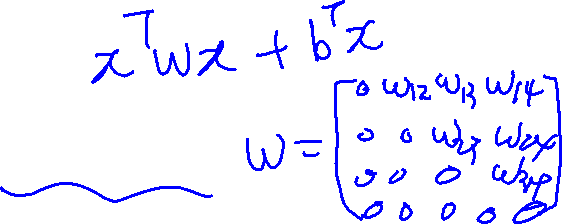 xᵀWx + bᵀx
W = [0 W12 W13 W14
0 0 W23 W24
0 0 0 W34
0 0 0 0 0]